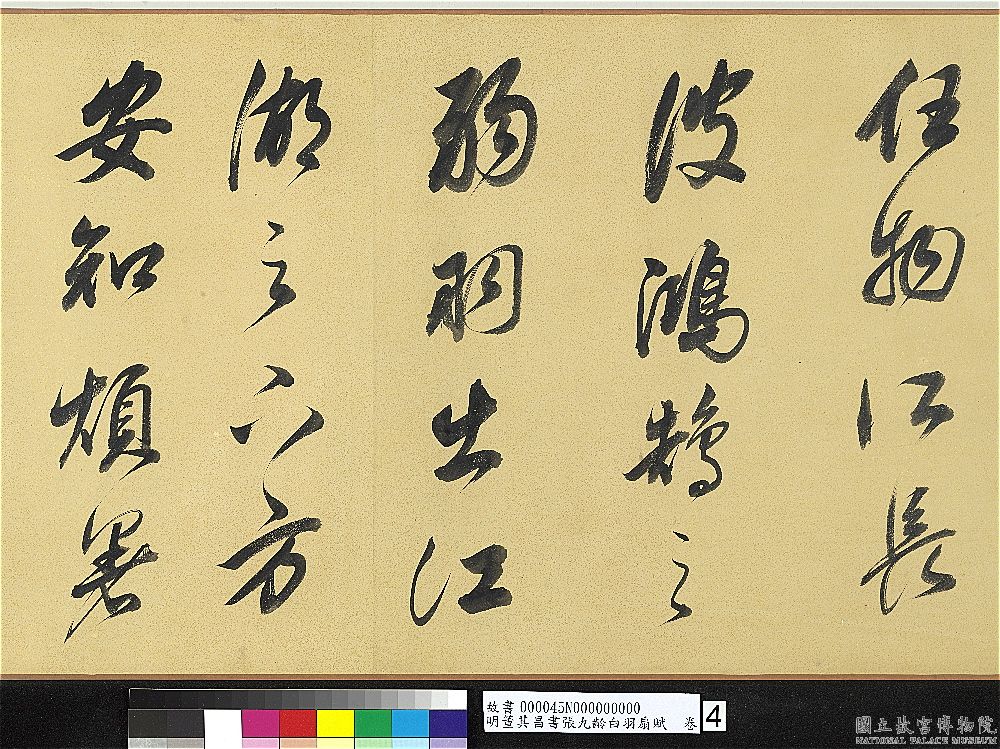 任物所長
彼鴻鵠之
弱羽出江
湖之下方
安知煩暑
故書 000045N000000000
明董其昌書張九齡白羽扇賦 卷
4
國立故宮博物院
NATIONAL PALACE MUSEUM